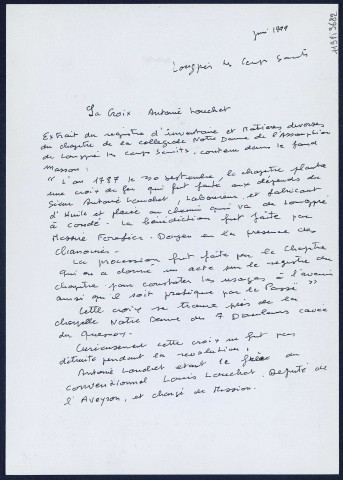 juin 1999
1131.3682
Longpré les Corps Saints
La Croix Antoine Louchet
Extrait du registre d'inventaire et Matières diverses
du chapitre de la collégiale Notre Dame de l'Assomption
de Longpré les Corps Saints, contenu dans le fond
Masson:
" L'an 1787 le 30 septembre, le chapitre planta
une croix de fer qui fut faite aux dépends du
Sieur Antoine Louchet, Laboureur et fabricant
d'Huile et placée au chemin qui va de Longpré
à Condé. La bénédiction fut faite par
Messire Doyen en la présence des
chanoines.
La procession fut faite par le chapitre
qui en a donné un acte sur le registre du
chapitre pour constater les usages à l'avenir
ainsi qu'il soit pratiqué par le Passé "
Cette croix se trouve près de la
chapelle Notre Dame des 7 Douleurs cavée
du Quesnoy.
Curieusement cette croix ne fut pas
détruite pendant la révolution,
Antoine Louchet étant le frère du
conventionnel Louis Louchet. Député de
l'Aveyron, et chargé de Mission.